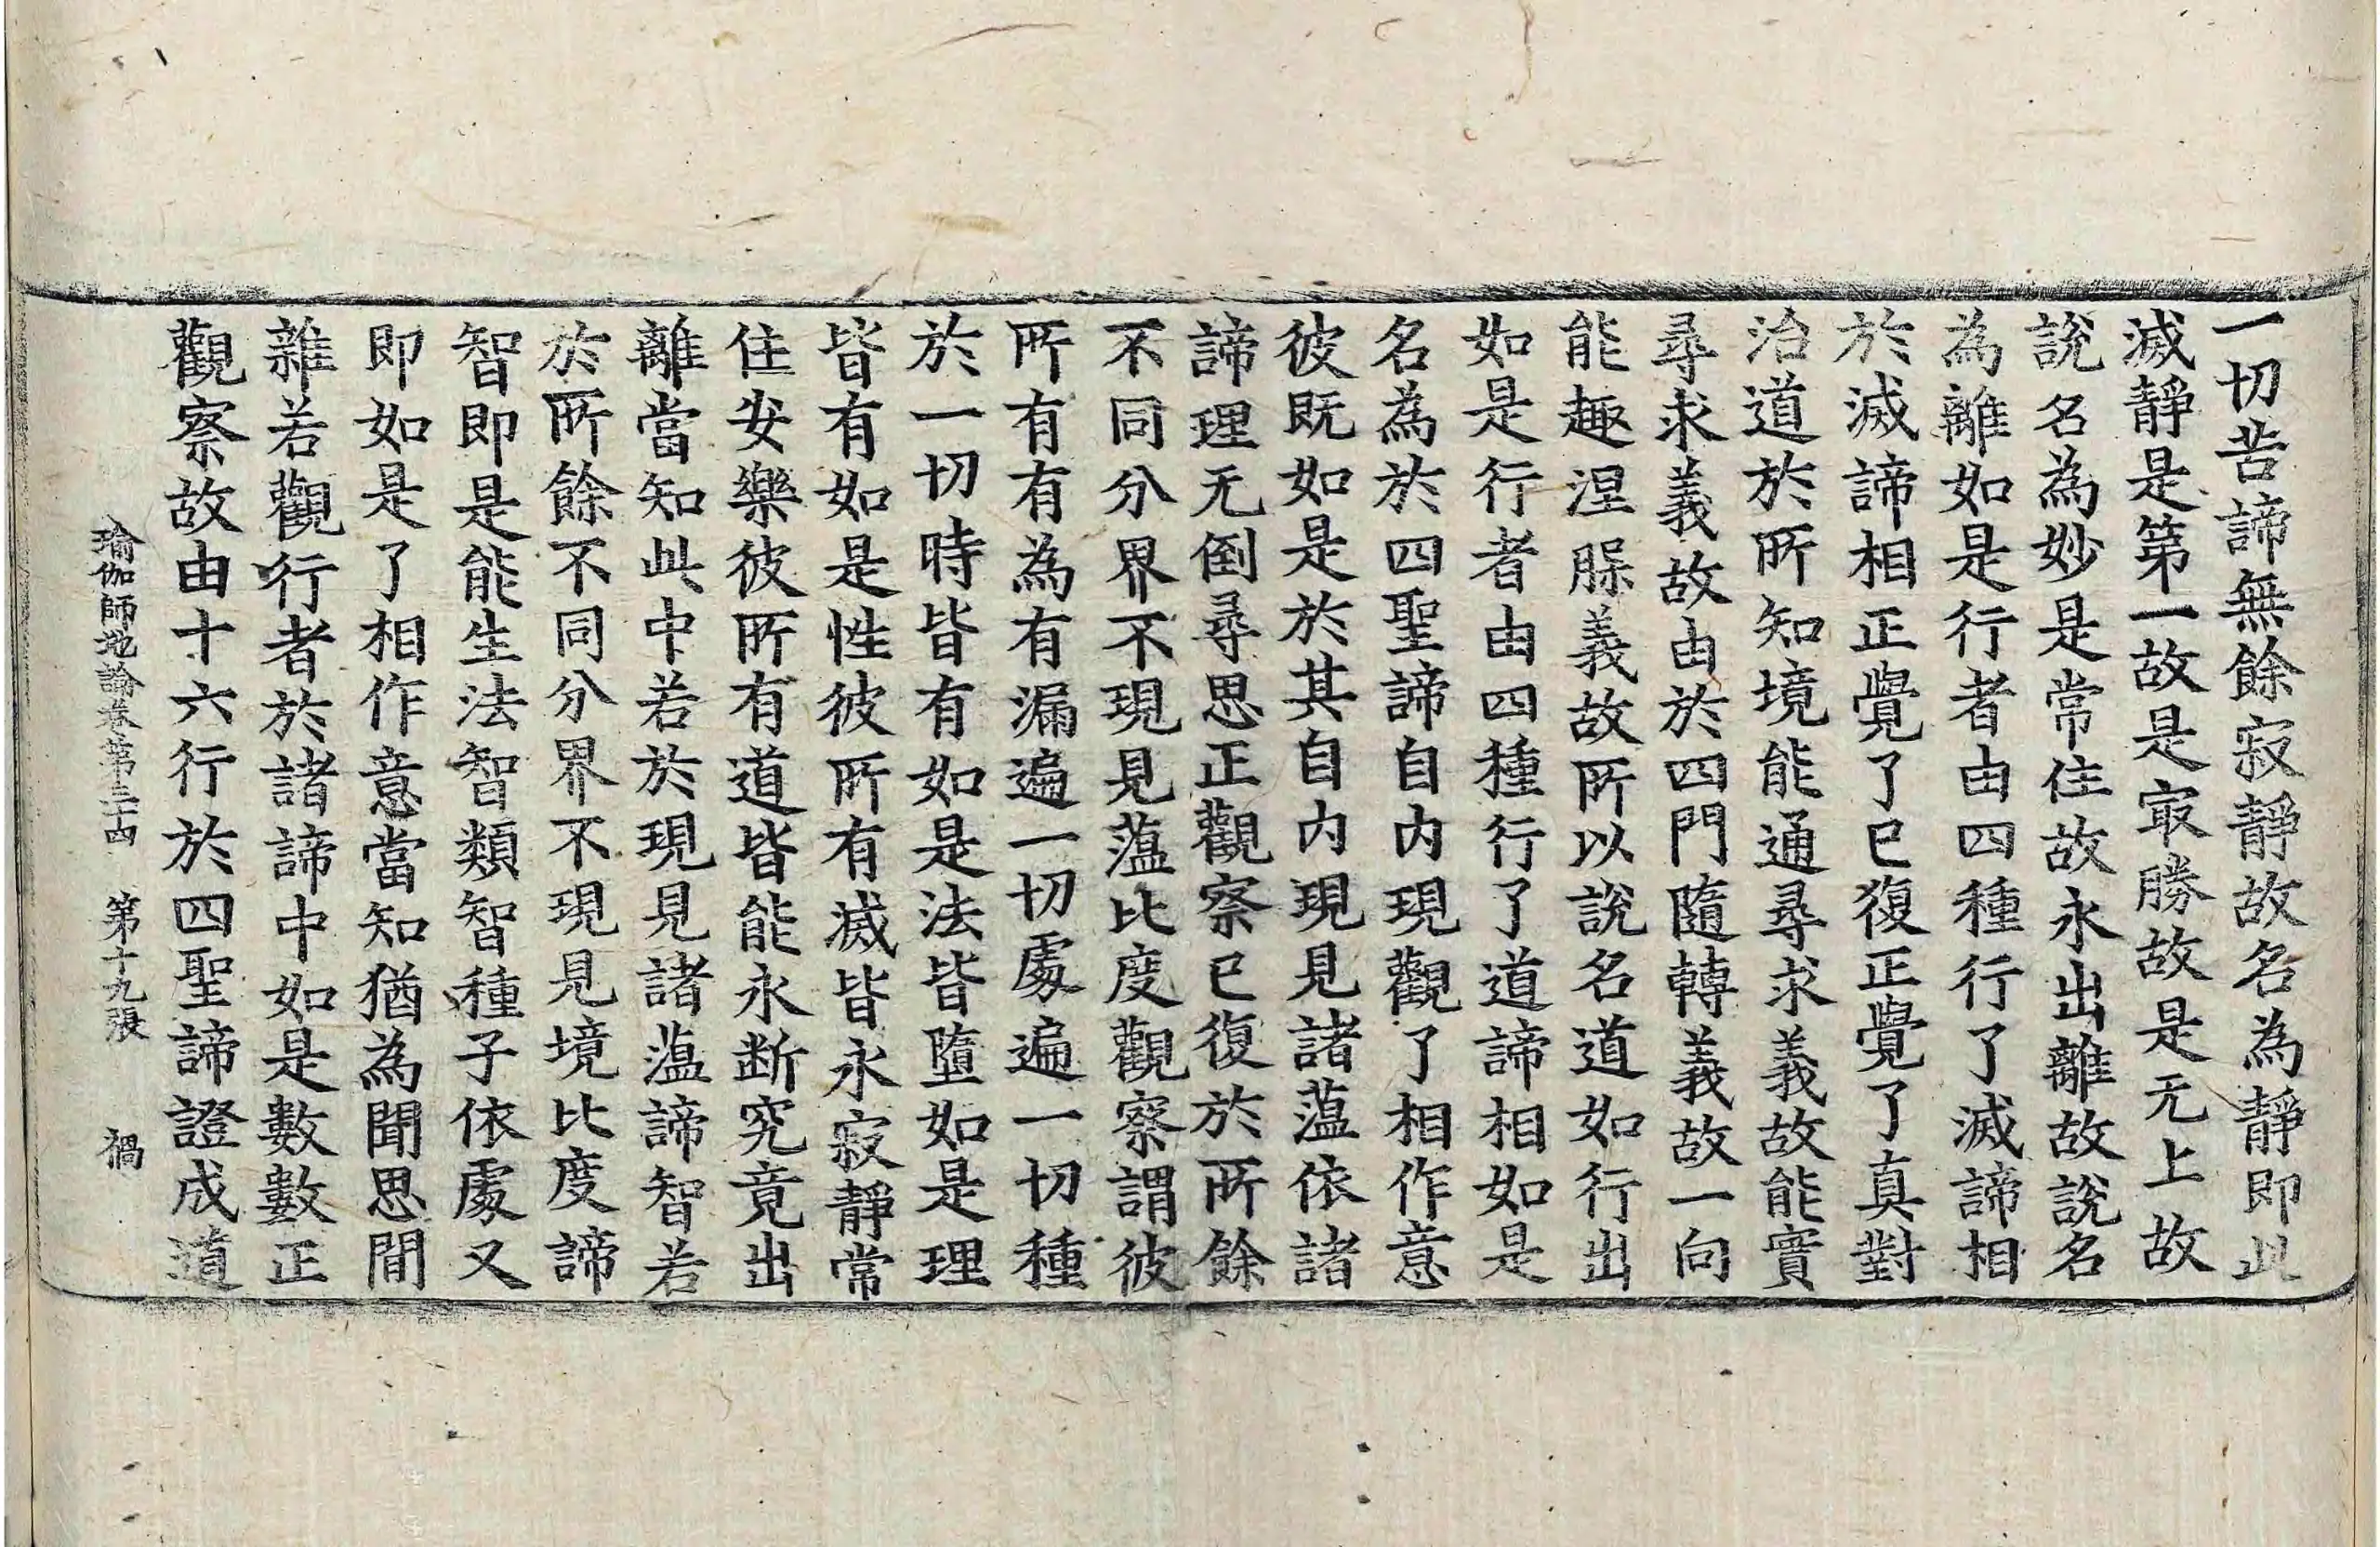 一切苦諦無餘寂靜故名為靜即此
滅靜是第一故是㝡勝故是无上故
說名為妙是常住故永出離故說名
為離如是行者由四種行了滅諦相
於滅諦相正覺了已復正覺了真對
治道於所知境能通尋求義故能實
尋求義故由於四門隨轉義故一向
能趣涅槃義故所以說名道如行出
如是行者由四種行了道諦相如是
名為於四聖諦自內現觀了相作意
彼既如是於其自內現見諸蘊依諸
諦理无倒尋思正觀察已復於所餘
不同分界不現見蘊比度觀察謂彼
所有有為有漏遍一切處遍一切種
於一切時皆有如是法皆墮如是理
皆有如是性彼所有滅皆永寂靜常
住安樂彼所有道皆能永斷究竟出
離當知此中若於現見諸蘊諦智若
於所餘不同分界不現見境比度諦
智即是能生法智類智種子依處又
即如是了相作意當知猶為聞思閒
雜若觀行者於諸諦中如是數數正
觀察故由十六行於四聖諦證成道
瑜伽師地論卷第三十四 第十九張 禍